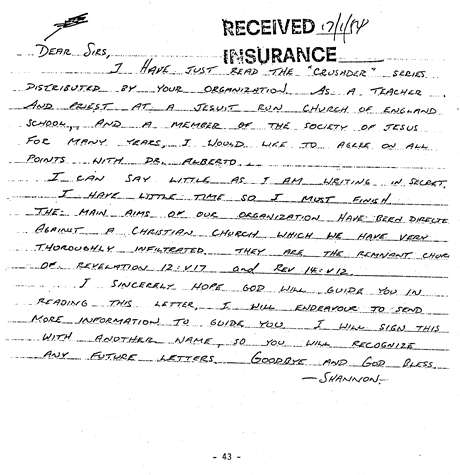 RECEIVED 17/1/84
INSURANCE
DEAR SIRS,
I HAVE JUST READ THE "CRUSADER" SERIES
DISTRIBUTED BY YOUR ORGANIZATION. AS A TEACHER
AND PRIEST AT A JESUIT RUN CHURCH OF ENGLAND
SCHOOL, AND A MEMBER OF THE SOCIETY OF JESUS
FOR MANY YEARS, I WOULD LIKE TO AGREE ON ALL
POINTS WITH DR. ALBERTO.
I CAN SAY LITTLE AS I AM WRITING IN SECRET.
I HAVE LITTLE TIME SO I MUST FINISH
THE MAIN AIMS OF OUR ORGANIZATION HAVE BEEN DIRECTE
AGAINST A CHRISTIAN CHURCH WHICH WE HAVE VERY
THOROUGHLY INFILTRATED. THEY ARE THE REMNANT CHUR
OF REVELATION 12:V17 and REV 14:V12.
I SINCERELY HOPE GOD WILL GUIDE YOU IN
READING THIS LETTER, I WILL ENDEAVOUR TO SEND
MORE INFORMATION TO GUIDE YOU I WILL SIGN THIS
WITH ANOTHER NAME, SO YOU WILL RECOGNIZE
ANY FUTURE LETTERS. GOODBYE AND GOD BLESS
—SHANNON.
- 43 -